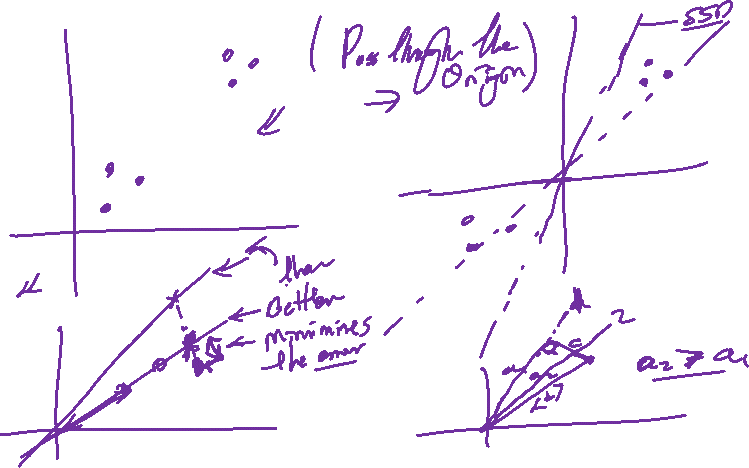 (Pass through the
Origin)
SSD
than
Better
minimines
the error
1
2
a₂ > a₁